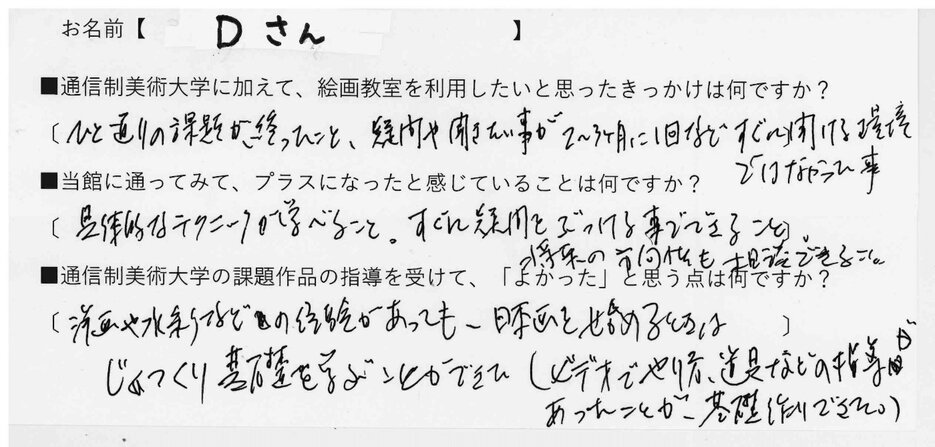 お名前【 Dさん 】
■通信制美術大学に加えて、絵画教室を利用したいと思ったきっかけは何ですか？
〔ひと通りの課題が終ったこと、疑問や聞きたい事が2〜3ヶ月に1回など すぐに聞ける環境
ではなかった事
■当館に通ってみて、プラスになったと感じていることは何ですか？
〔具体的なテクニックが学べること。すぐに疑問をぶつける事ができること〕
将来の方向性も相談できること。
■通信制美術大学の課題作品の指導を受けて、「よかった」と思う点は何ですか？
〔洋画や水彩などの経験があっても、日本画を始めるときは 〕
じっくり基礎を学ぶことができた（ビデオでやり方、道具などの指導が
あったことが、基礎作りできた。）